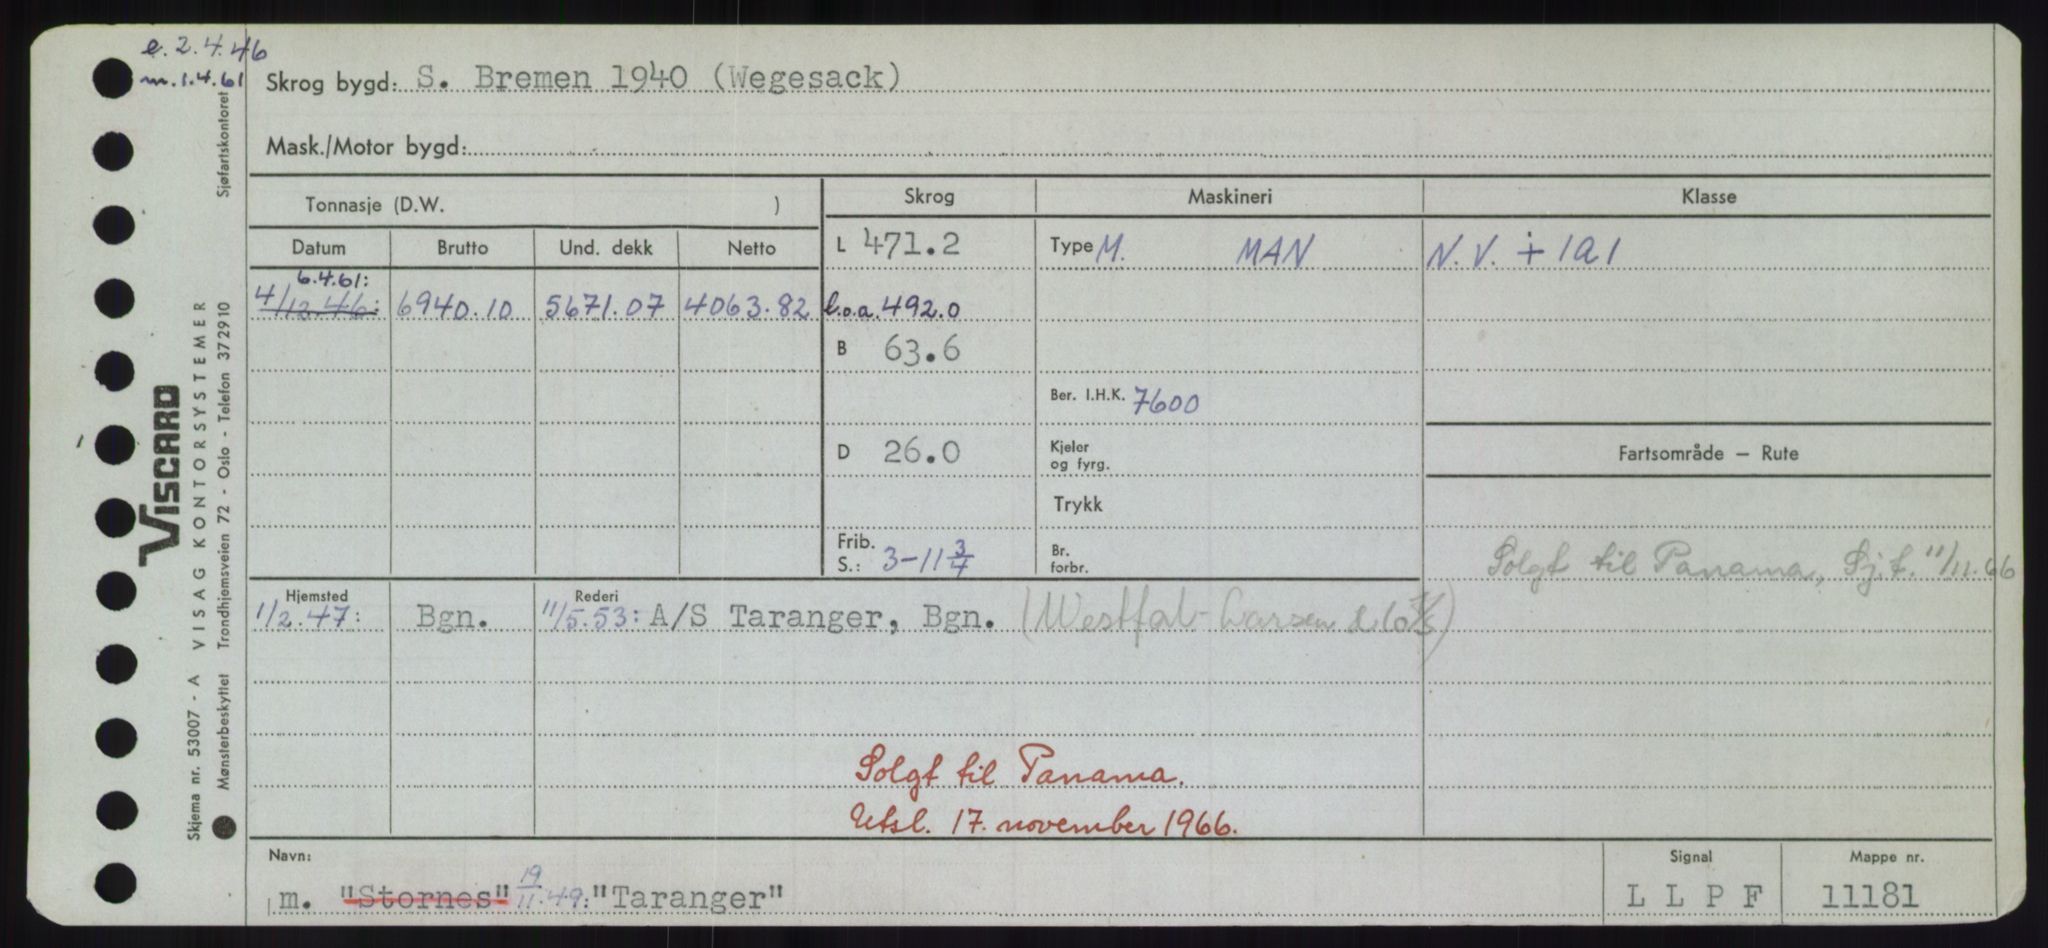 e. 2.4.46
m. 1.4.61
Skrog bygd: S. Bremen 1940 (Wegesack)
Mask./Motor bygd:
Tonnasje (D.W. )
Skrog Maskineri Klasse
Datum Brutto Und. dekk Netto
L 471.2 Type M. MAN N.V. + 1A1
6.4.61:
4/12.46: 6940.10 5671.07 4063.82 l.o.a. 492.0
B 63.6
Ber. I.H.K. 7600
D 26.0 Kjeler og fyrg.
Fartsområde — Rute
Trykk
Frib. S.: 3-11 3/4 Br. forbr.
Solgt til Panama, Sj.f. 11/11.66
Hjemsted Rederi
1/2.47: Bgn. 11/5.53: A/S Taranger, Bgn. (Westfal-Larsen & Co A/S)
Solgt til Panama.
Utsl. 17. november 1966.
Navn: Signal Mappe nr.
m. "Stornes" 19/11.49: "Taranger" L L P F 11181
VISCARD
Skjema nr. 53007 - A VISAG KONTORSYSTEMER
Mønsterbeskyttet Trondhjemsveien 72 - Oslo - Telefon 372910 Sjøfartskontoret